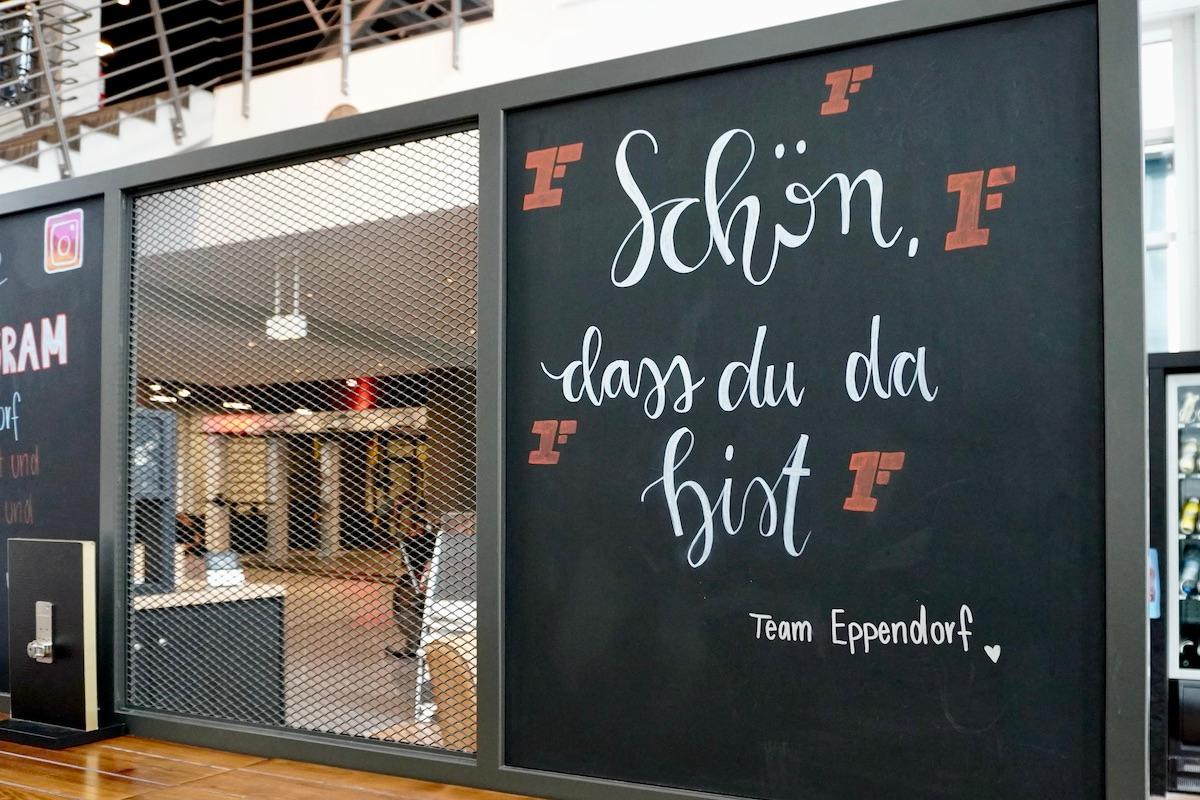 GRAM
und
und
F
F
Schön,
F
dass du da
F
bist
F
Team Eppendorf